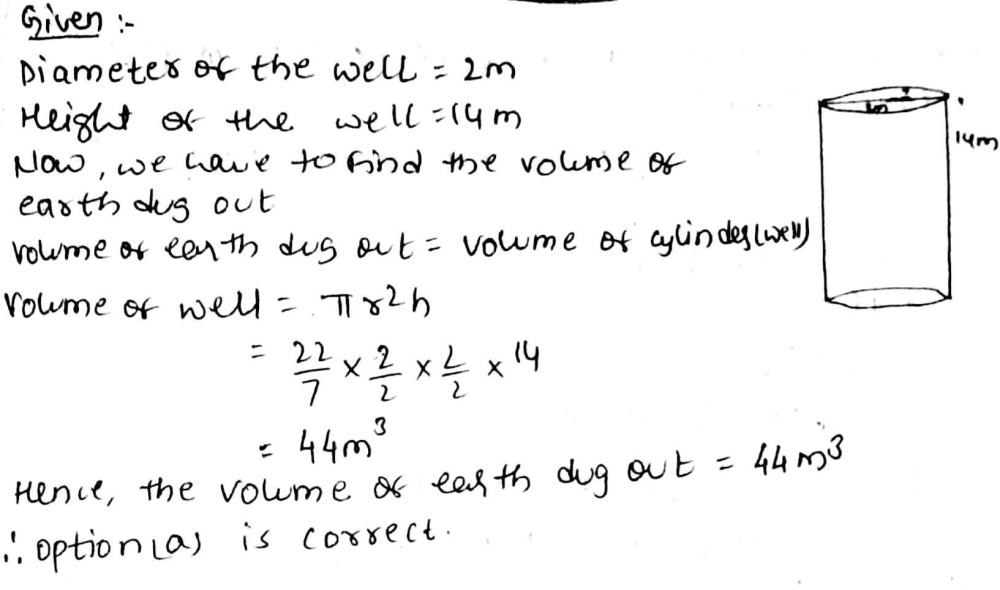 Given :-
Diameter of the well = 2m
Height of the well = 14m
Now, we have to find the volume of
earth dug out
volume of earth dug out = volume of cylinder (well)
Volume of well = πr2h
= 22/7 × 2/2 × 2/2 × 14
= 44m³
Hence, the volume of earth dug out = 44 m³
∴ option (a) is correct.
14m